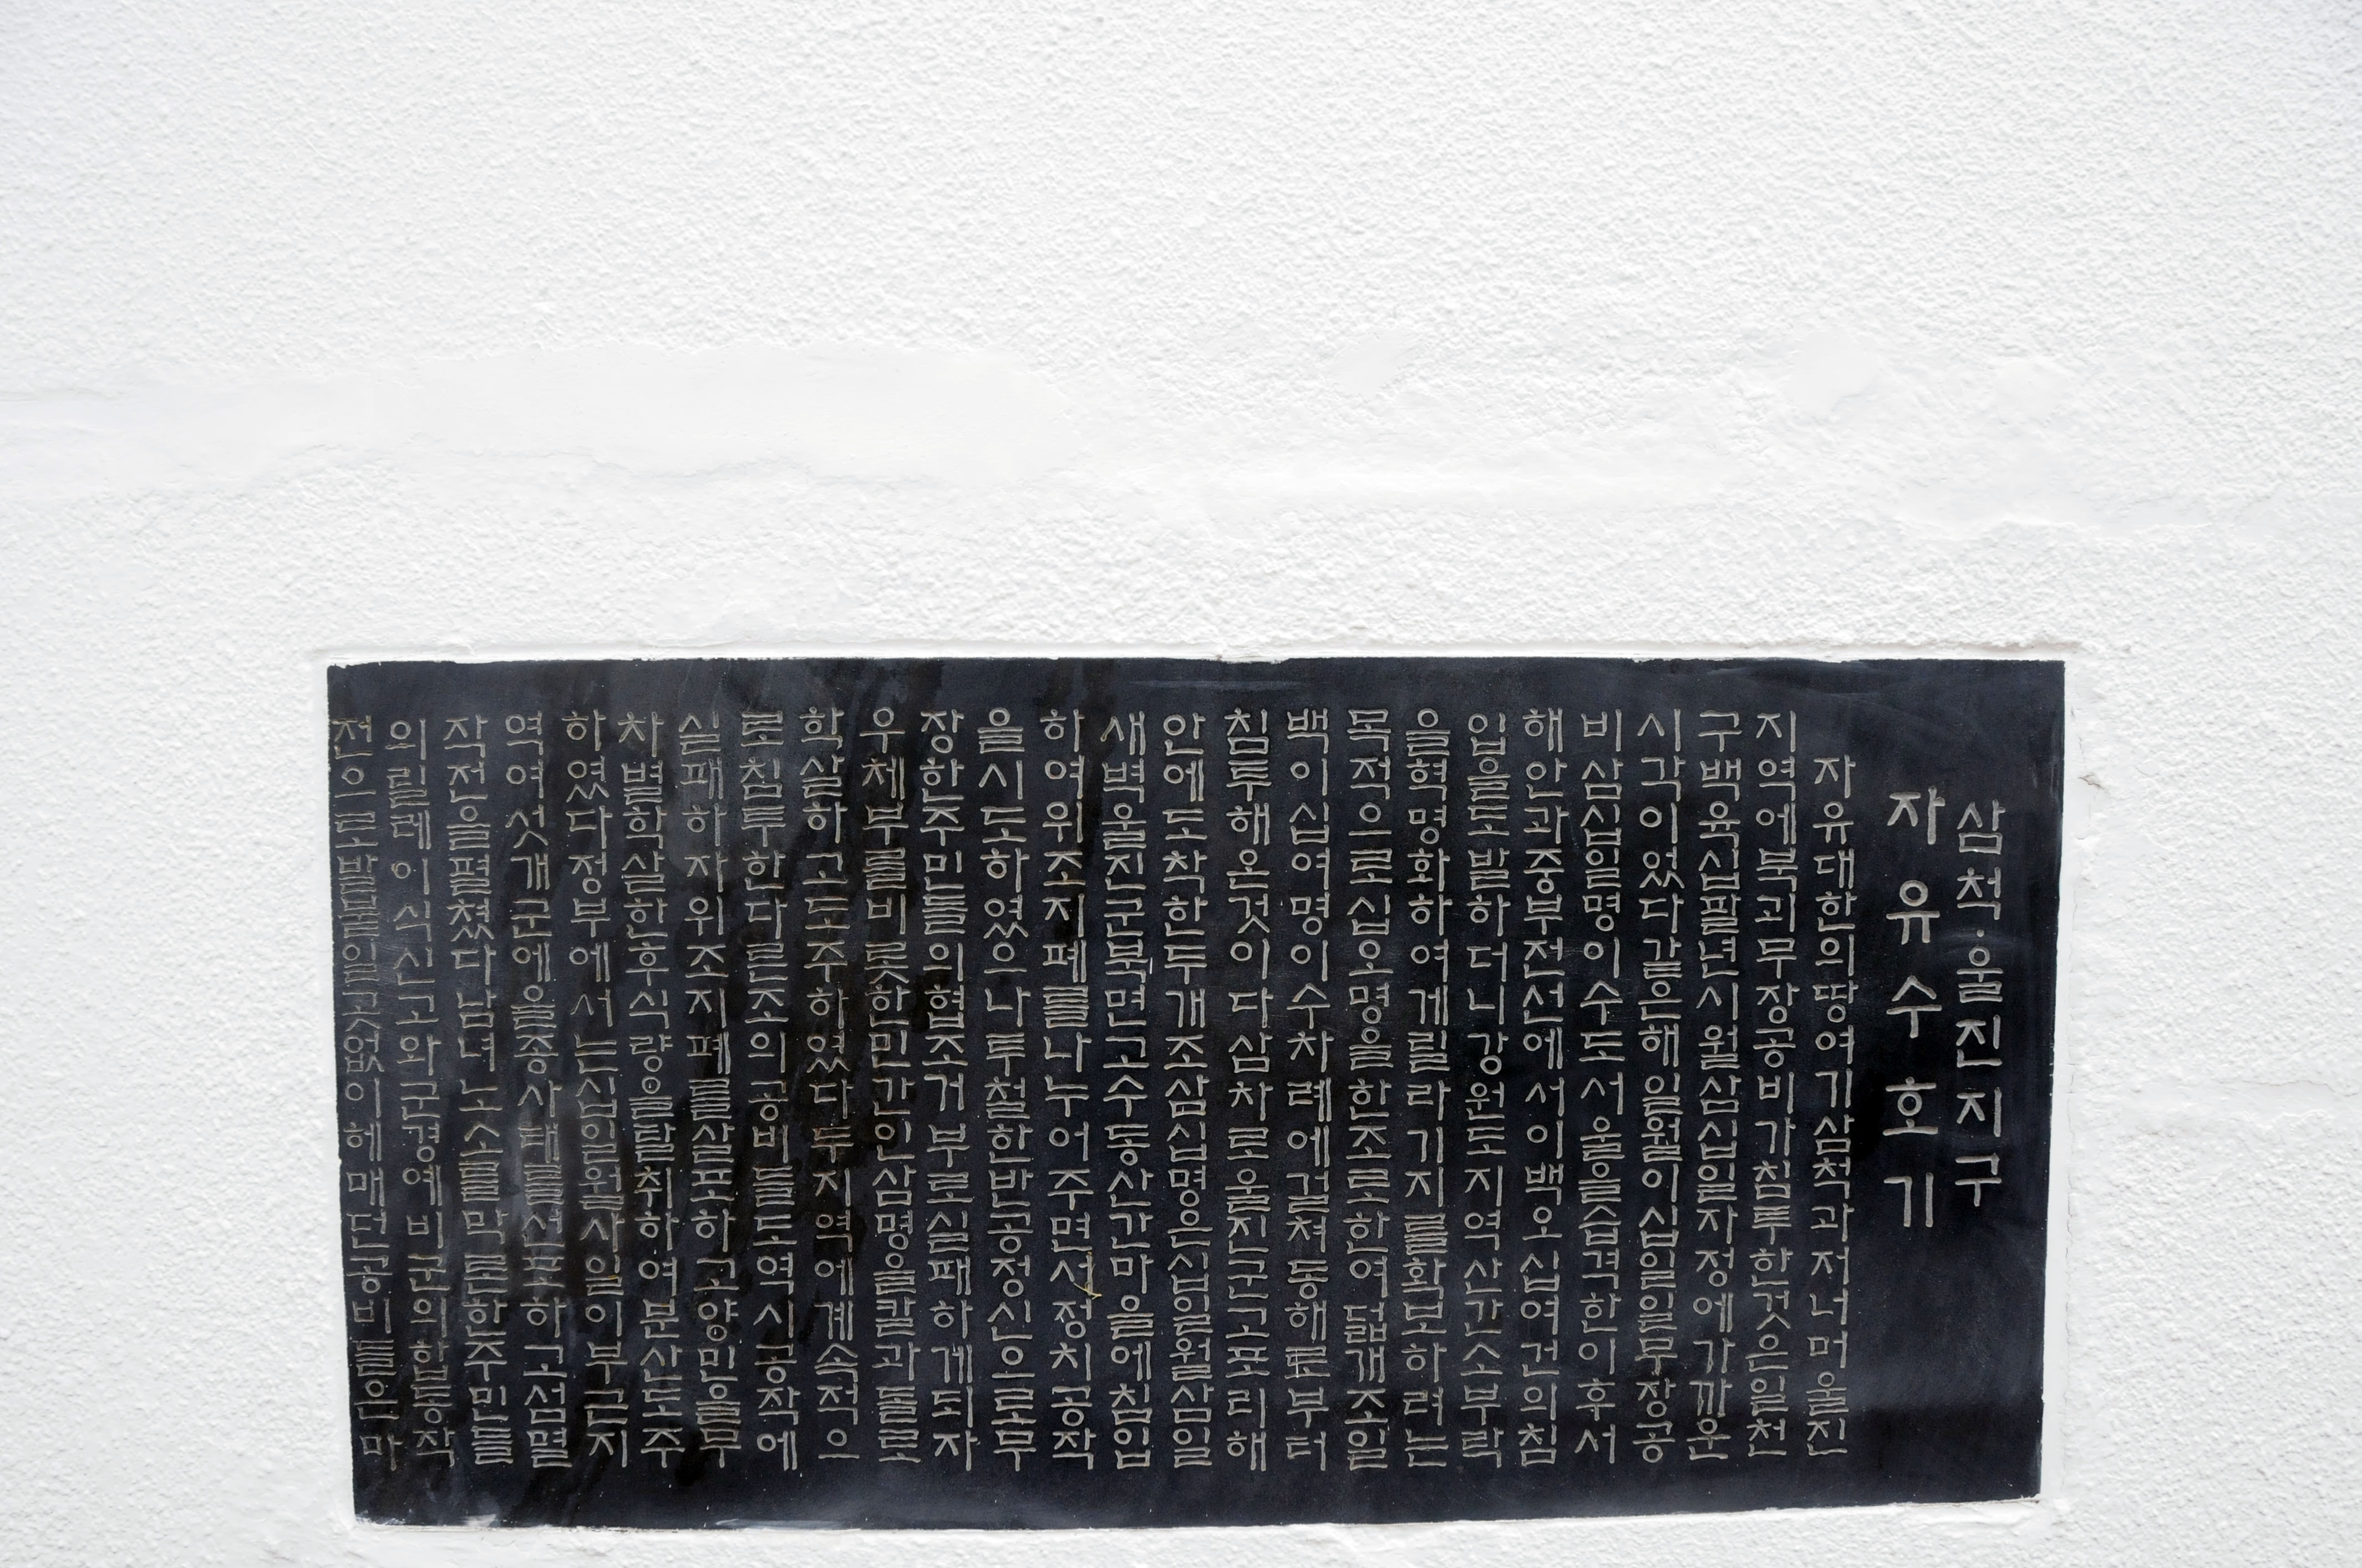 삼척·울진지구
자유수호기
자유대한의땅여기삼척과저너머울진
지역에북괴무장공비가침투한것은일천
구백육십팔년시월삼십일자정에가까운
시각이었다같은해일월이십일일무장공
비삼십일명이수도서울을습격한이후서
해안과중부전선에서이백오십여건의침
입을도발하더니강원도지역산간소부락
을혁명화하여게릴라기지를확보하려는
목적으로십오명을한조로한여덟개조일
백이십여명이수차례에걸쳐동해로부터
침투해온것이다삼차로울진군고포리해
안에도착한두개조삼십명은십일월삼일
새벽울진군북면고수동산간마을에침입
하여위조지폐를나누어주면서정치공작
을시도하였으나투철한반공정신으로무
장한주민들의협조거부로실패하게되자
우체부를비롯한민간인삼명을칼과돌로
학살하고도주하였다투지역에계속적으
로침투한다른조의공비들도역시공작에
실패하자위조지폐를살포하고양민을무
차별학살한후식량을탈취하여분산도주
하였다정부에서는십일월사일이부근지
역여섯개군에을종사태를선포하고섬멸
작전을펼쳤다남녀노소를막론한주민들
의릴레이식신고와군경예비군의합동작
전으로발붙일곳없이헤매던공비들은마